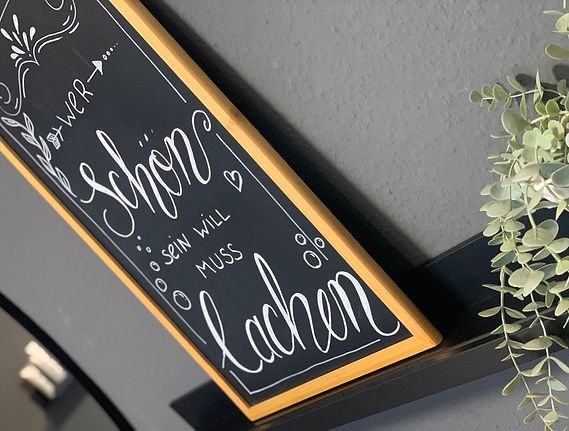 WER
schön
SEIN WILL
MUSS
lachen